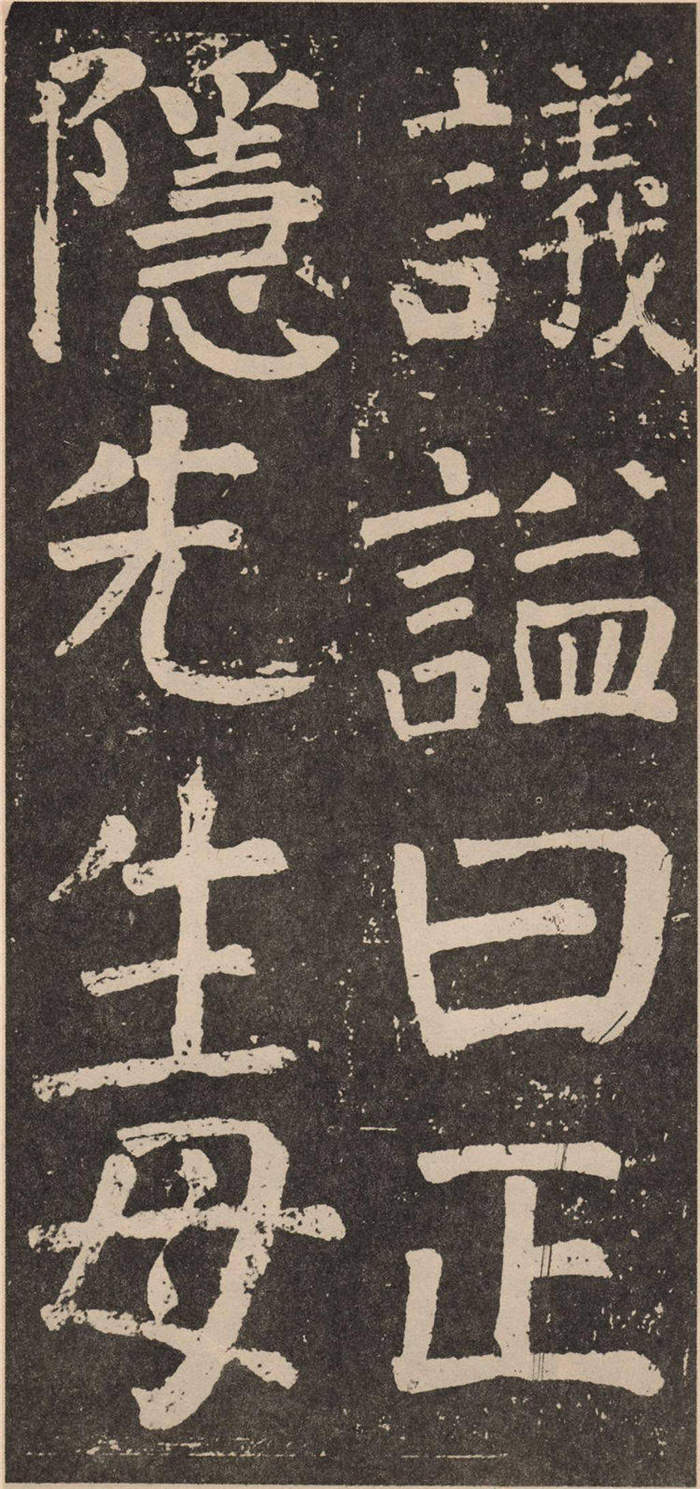 議謚曰正
隱先生母